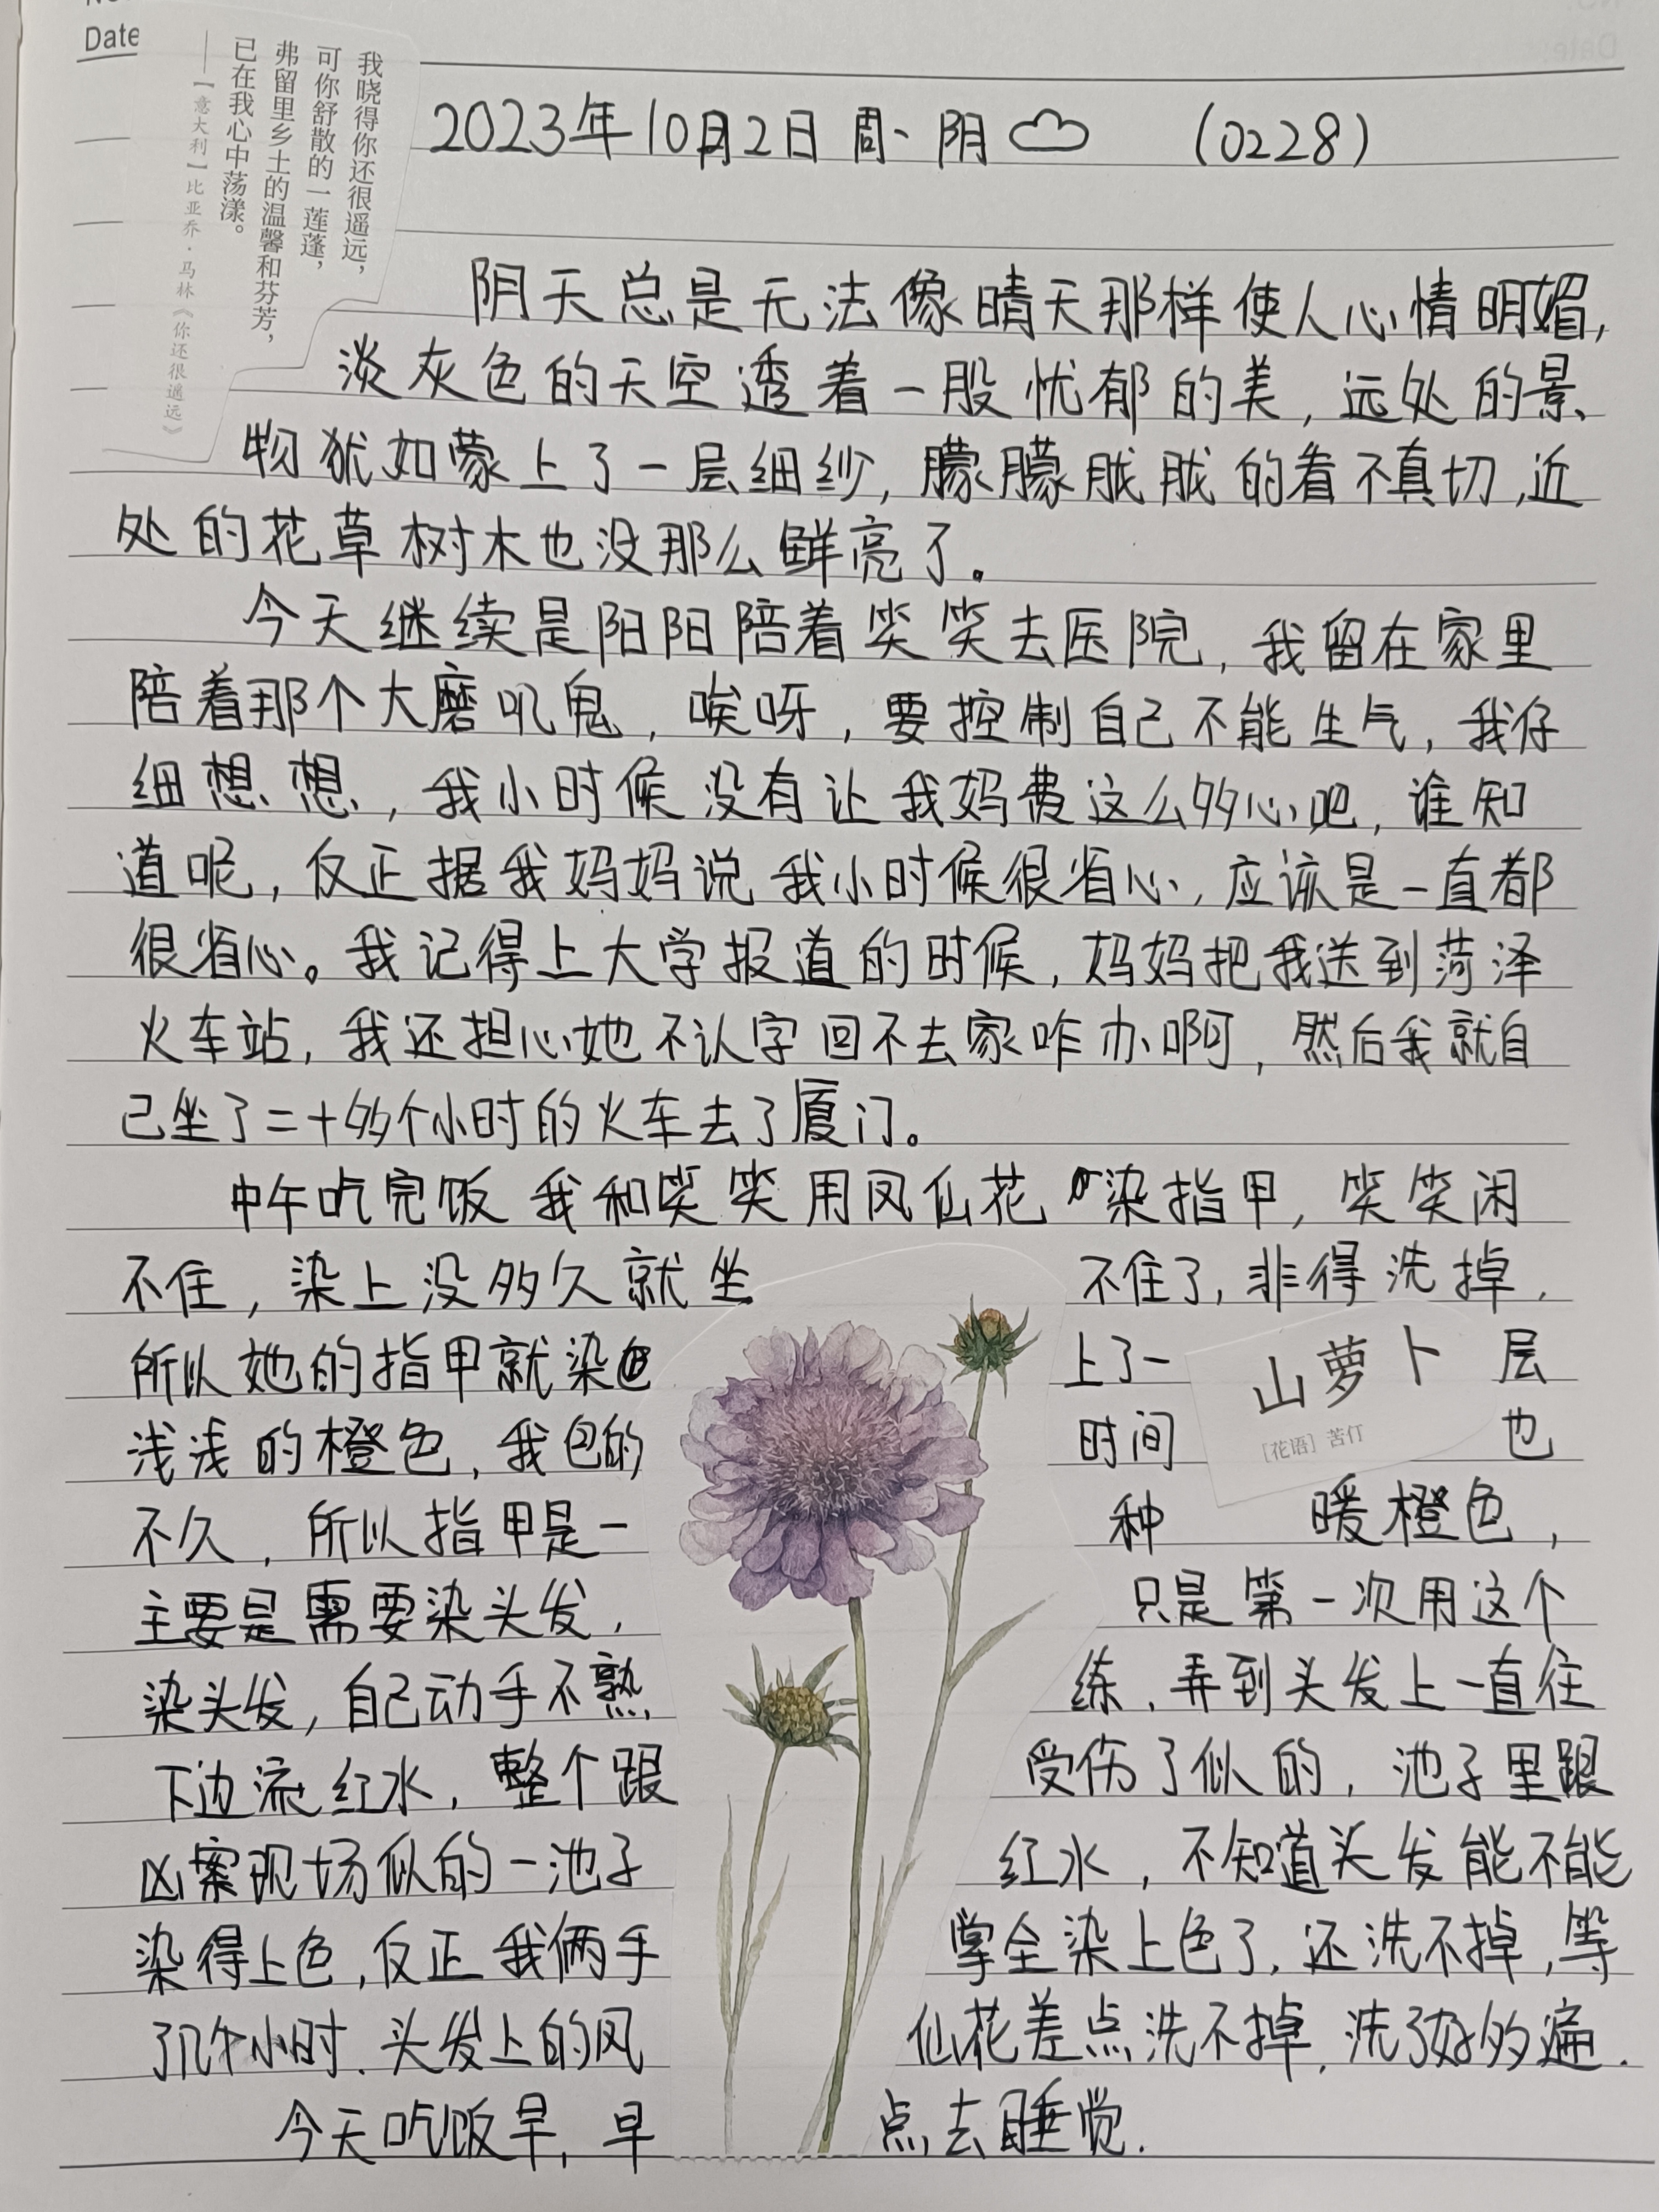 No.
Date
我晓得你还很遥远，
可你舒散的一莲蓬，
弗留里乡土的温馨和芬芳，
已在我心中荡漾。
——【意大利】比亚乔·马林《你还很遥远》
2023年10月2日 周一 阴 (0228)
阴天总是无法像晴天那样使人心情明媚，
淡灰色的天空透着一股忧郁的美，远处的景
物犹如蒙上了一层细纱，朦朦胧胧的看不真切，近
处的花草树木也没那么鲜亮了。
今天继续是阳阳陪着笑笑去医院，我留在家里
陪着那个大磨叽鬼，唉呀，要控制自己不能生气，我仔
细想想，我小时候没有让我妈费这么多心吧，谁知
道呢，反正据我妈妈说我小时候很省心，应该是一直都
很省心。我记得上大学报道的时候，妈妈把我送到菏泽
火车站，我还担心她不认字回不去家咋办啊，然后我就自
己坐了二十多个小时的火车去了厦门。
中午吃完饭我和笑笑用凤仙花染指甲，笑笑闲
不住，染上没多久就坐不住了，非得洗掉．
所以她的指甲就染上了一层
浅浅的橙色，我包的时间也
不久，所以指甲是一种暖橙色，
主要是需要染头发，只是第一次用这个
染头发，自己动手不熟练，弄到头发上一直往
下边流红水，整个跟受伤了似的，池子里跟
凶案现场似的一池子红水，不知道头发能不能
染得上色，反正我俩手掌全染上色了，还洗不掉，等
了几个小时．头发上的凤仙花差点洗不掉，洗了好多遍．
今天吃饭早，早点去睡觉．
山萝卜
［花语］苦仃